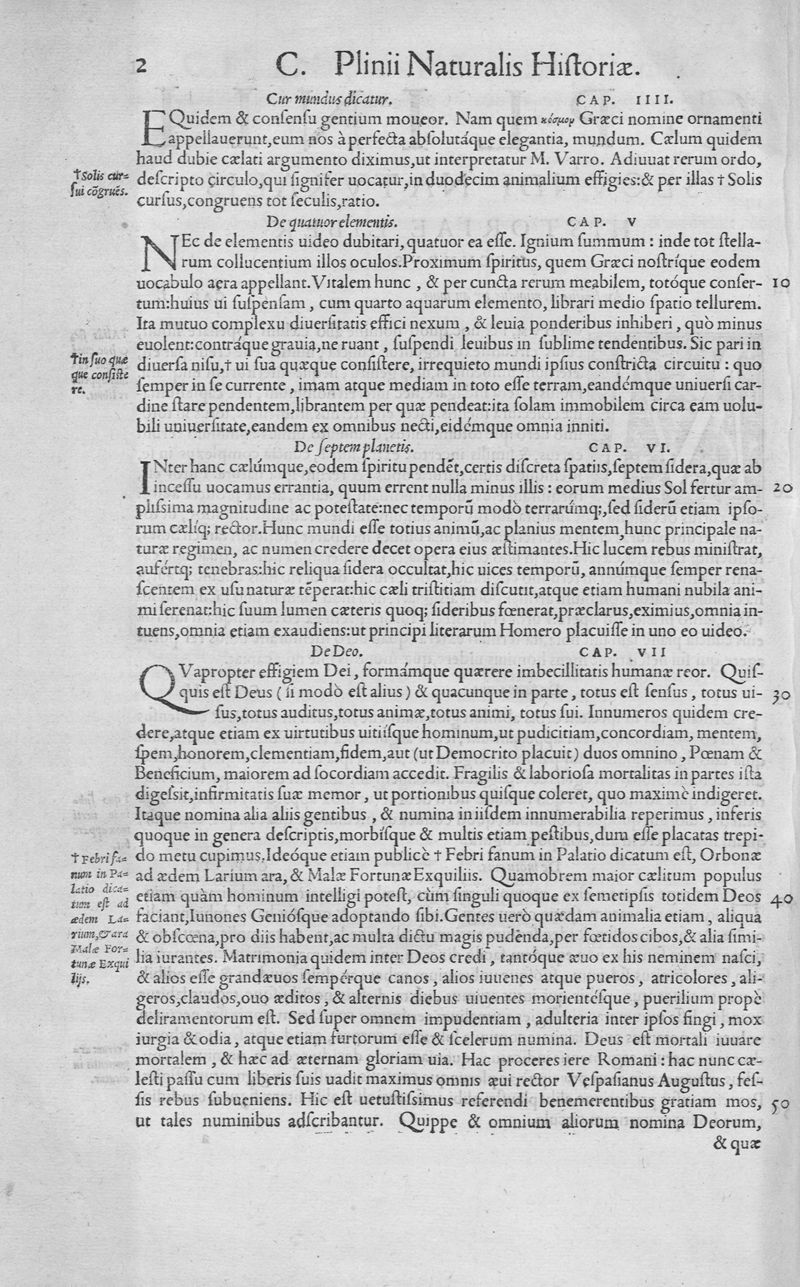 2 C. Plinii Naturalis Hiſtoriæ.
Cur mundus dicatur. CAP. IIII.
EQuidem & conſenſu gentium moueor. Nam quem κόσμον Græci nomine ornamenti
appellauerunt,eum nos à perfecta abſolutáque elegantia, mundum. Cælum quidem
haud dubie cælati argumento diximus,ut interpretatur M. Varro. Adiuuat rerum ordo,
†Solis cur=
ſui cõgruẽs.
deſcripto circulo,qui ſignifer uocatur,in duodecim animalium effigies:& per illas † Solis
curſus,congruens tot ſeculis,ratio.
De quatuor elementis. CAP. V
NEc de elementis uideo dubitari,quatuor ea eſſe. Ignium ſummum : inde tot ſtella-
rum collucentium illos oculos.Proximum ſpiritus, quem Græci noſtríque eodem
uocabulo aera appellant.Vitalem hunc , & per cuncta rerum meabilem, totóque conſer- 10
tum:huius ui ſuſpenſam , cum quarto aquarum elemento, librari medio ſpatio tellurem.
Ita mutuo complexu diuerſitatis effici nexum , & leuia ponderibus inhiberi , quò minus
euolent:contráque grauia,ne ruant , ſuſpendi leuibus in ſublime tendentibus. Sic pari in
†in ſuo quæ
que conſiſte
re.
diuerſa niſu,† ui ſua quæque conſiſtere, irrequieto mundi ipſius conſtricta circuitu : quo
ſemper in ſe currente , imam atque mediam in toto eſſe terram,eandémque uniuerſi car-
dine ſtare pendentem,librantem per quæ pendeat:ita ſolam immobilem circa eam uolu-
bili uniuerſitate,eandem ex omnibus necti,eidémque omnia inniti.
De ſeptem planetis. CAP. VI.
INter hanc cælúmque,eodem ſpiritu pendẽt,certis diſcreta ſpatiis,ſeptem ſidera,quæ ab
inceſſu uocamus errantia, quum errent nulla minus illis : eorum medius Sol fertur am- 20
pliſsima magnitudine ac poteſtate:nec temporũ modò terrarúmq;,ſed ſiderũ etiam ipſo-
rum cælíq; rector.Hunc mundi eſſe totius animũ,ac planius mentem,hunc principale na-
turæ regimen, ac numen credere decet opera eius æſtimantes.Hic lucem rebus miniſtrat,
aufértq; tenebras:hic reliqua ſidera occultat,hic uices temporũ, annúmque ſemper rena-
ſcentem ex uſu naturæ tẽperat:hic cæli triſtitiam diſcutit,atque etiam humani nubila ani-
mi ſerenat:hic ſuum lumen cæteris quoq; ſideribus fœnerat,præclarus,eximius,omnia in-
tuens,omnia etiam exaudiens:ut principi literarum Homero placuiſſe in uno eo uideo.
De Deo. CAP. VII
QVapropter effigiem Dei , formámque quærere imbecillitatis humanæ reor. Quiſ-
quis eſt Deus ( ſi modò eſt alius ) & quacunque in parte , totus eſt ſenſus , totus ui- 30
ſus,totus auditus,totus animæ,totus animi, totus ſui. Innumeros quidem cre-
dere,atque etiam ex uirtutibus uitiíſque hominum,ut pudicitiam,concordiam, mentem,
ſpem,honorem,clementiam,fidem,aut (ut Democrito placuit) duos omnino , Pœnam &
Beneficium, maiorem ad ſocordiam accedit. Fragilis & laborioſa mortalitas in partes iſta
digeſsit,infirmitatis ſuæ memor , ut portionibus quiſque coleret, quo maximè indigeret.
Itaque nomina alia aliis gentibus , & numina in iiſdem innumerabilia reperimus , inferis
quoque in genera deſcriptis,morbíſque & multis etiam peſtibus,dum eſſe placatas trepi-
† Febri fa=
num in Pa=
latio dica=
tum eſt ad
ædem La=
rium,& ara
Malæ For=
tunæ Exqui
lijs.
do metu cupimus.Ideóque etiam publicè † Febri fanum in Palatio dicatum eſt, Orbonæ
ad ædem Larium ara, & Malæ Fortunæ Exquiliis. Quamobrem maior cælitum populus
etiam quàm hominum intelligi poteſt, cùm ſinguli quoque ex ſemetipſis totidem Deos 40
faciant,Iunones Genióſque adoptando ſibi.Gentes uerò quædam animalia etiam , aliqua
& obſcœna,pro diis habent,ac multa dictu magis pudenda,per fœtidos cibos,& alia ſimi-
lia iurantes. Matrimonia quidem inter Deos credi , tantóque æuo ex his neminem naſci,
& alios eſſe grandæuos ſempérque canos , alios iuuenes atque pueros , atricolores , ali-
geros,claudos,ouo æditos , & alternis diebus uiuentes morientéſque , puerilium propè
deliramentorum eſt. Sed ſuper omnem impudentiam , adulteria inter ipſos fingi , mox
iurgia & odia , atque etiam furtorum eſſe & ſcelerum numina. Deus eſt mortali iuuare
mortalem , & hæc ad æternam gloriam uia. Hac proceres iere Romani : hac nunc cæ-
leſti paſſu cum liberis ſuis uadit maximus omnis æui rector Veſpaſianus Auguſtus , feſ-
ſis rebus ſubueniens. Hic eſt uetuſtiſsimus referendi benemerentibus gratiam mos, 50
ut tales numinibus adſcribantur. Quippe & omnium aliorum nomina Deorum,
& quæ